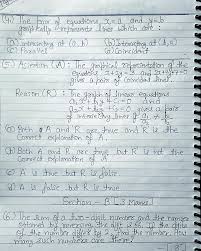 (4) The pair of equations x=a and y=b
graphically represents lines which are :
(a) Intersecting at (a,b) (b) Intersecting at (b,a)
(c) Parallel (d) Coincident
(5) Assertion (A) : The graphical representation of the
equations x+2y-3 and
gives a pair of coincident lines.
Reason (R) : The graph of linear equations
gives a pair of
intersecting lines if
(a) Both A and R are true and R is the
correct explanation of A.
(b) Both A and R are true but R is not the
correct explanation of A.
(c) A is true but R is false.
(d) A is false but R is true.
Section - B [3 Marks]
(6) The sum of a two-digit number and the number
obtained by reversing the digits is 66. If the digits
of the number differ by 2, find the number. How
many such numbers are there?